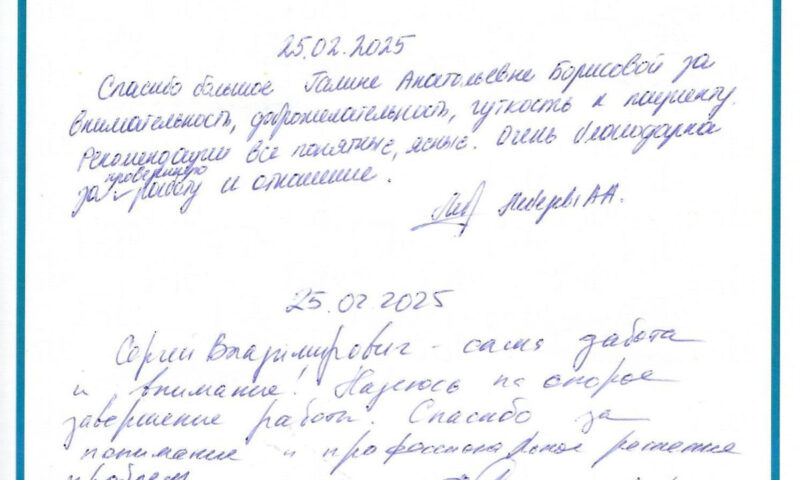 25.02.2025
Спасибо большое Галине Анатольевне Борисовой за
внимательность, доброжелательность, чуткость к пациенту.
Рекомендации все понятные, ясные. Очень благодарна
за работу и отношение.
А.А.
25.02.2025
Сергей Владимирович - сама забота
и внимание! Надеюсь на скорое
завершение работы. Спасибо за
понимание и профессиональное решение
проблем